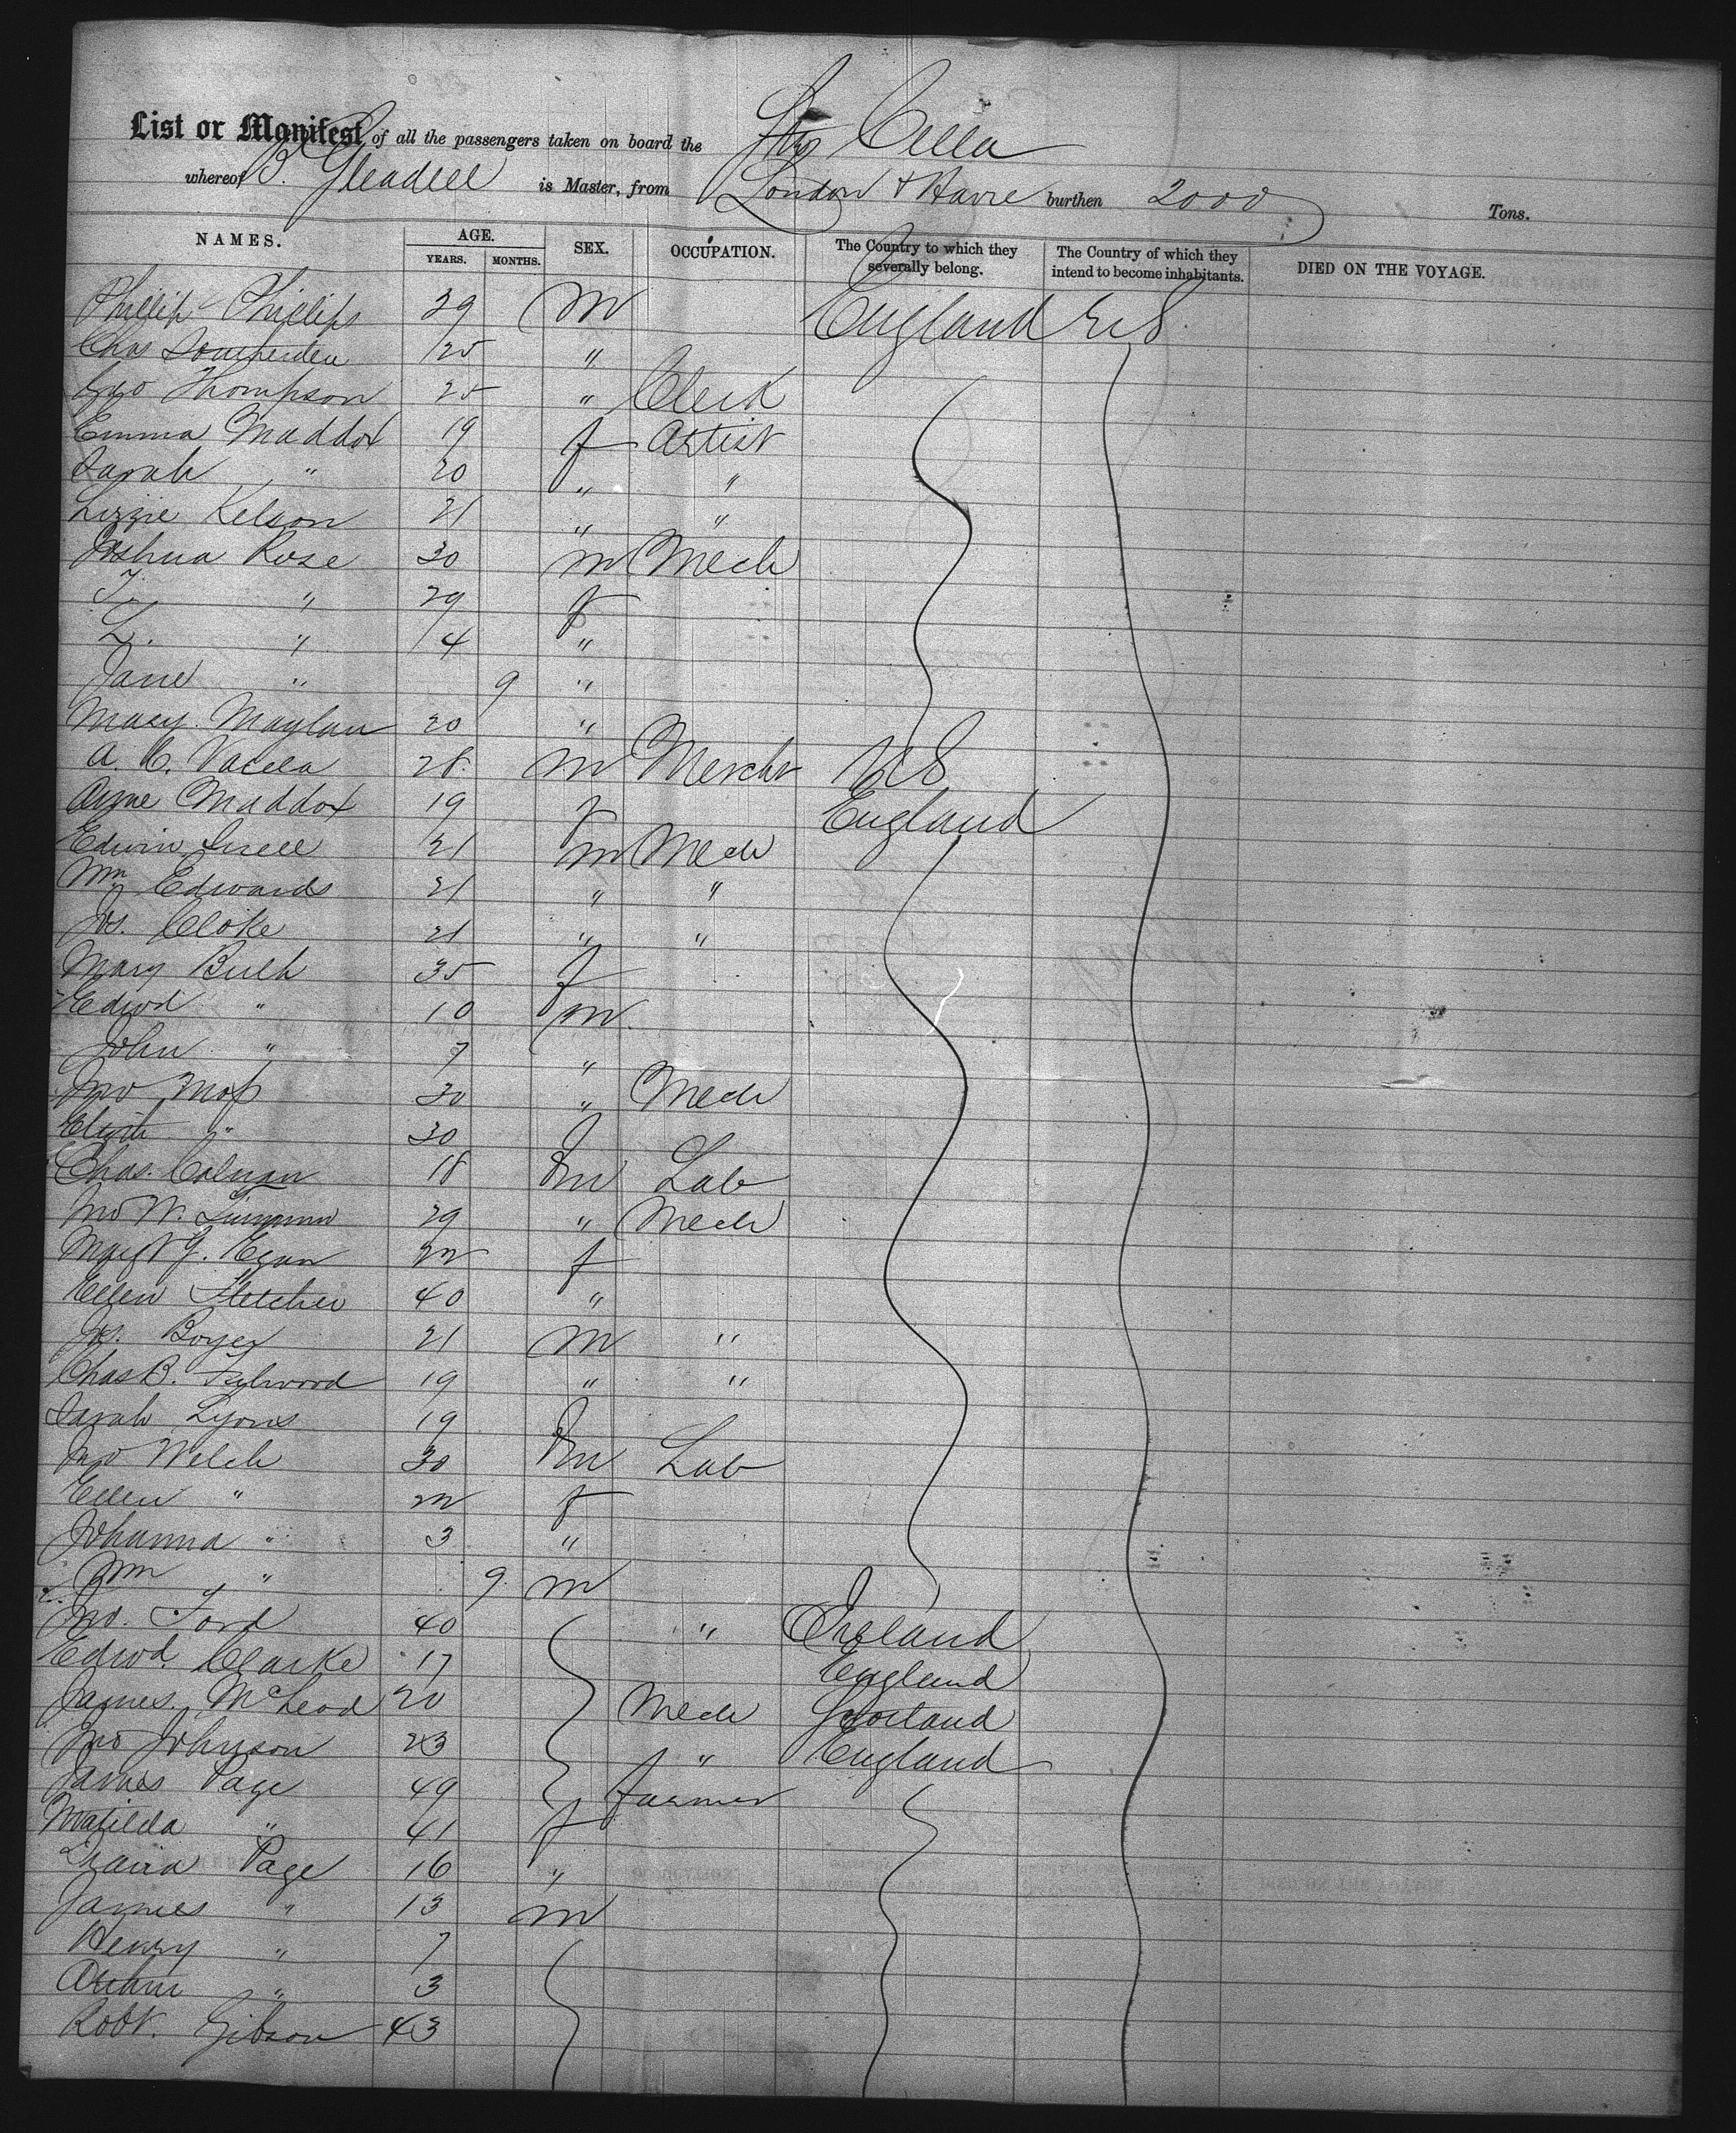 List or Manifest of all the passengers taken on board the Str Cella
whereof B. Gleadell is Master, from London & Havre burthen 2000 Tons.
NAMES. AGE. YEARS. MONTHS. SEX. OCCUPATION. The Country to which they severally belong. The Country of which they intend to become inhabitants. DIED ON THE VOYAGE.
Phillip Phillips 29 M England U S
Chas 25 "
Geo Thompson 25 " Clerk
Emma Maddox 19 f Artist
Sarah " 20 " "
Lizzie Kelson 21 " "
Joshua Rose 30 m Mech
T. " 29 f
L. " 4 "
Jane " 9 "
Mary Maylan 20 "
A. C. 28 m Mercht U S
Anne Maddox 19 f England
Edwin 21 m Mech
Wm Edwards 21 " "
Js. Cloke 21 " "
Mary Bulh 35 f
Edwd " 10 m
John " 7 "
Jno Moss 30 " Mech
" 30 f
Chas. Colman 18 m Lab
Jno W. 29 " Mech
Margt J. Egan 22 f
Ellen Fletcher 40 "
Js. Boyer 21 m "
Chas B. 19 " "
Sarah Lyons 19 f
Jno Welch 30 m Lab
Ellen " 22 f
Johanna " 3 "
Wm " 9 m
Jno. Ford 40 " Ireland
Edwd. Clarke 17 England
James McLeod 20 Mech Scotland
Jno Johnson 23 " England
James Page 49 farmer
Matilda " 41 f
Page 16 "
James " 13 m
Henry " 7
Arthur " 3
Robt. Gibson 43